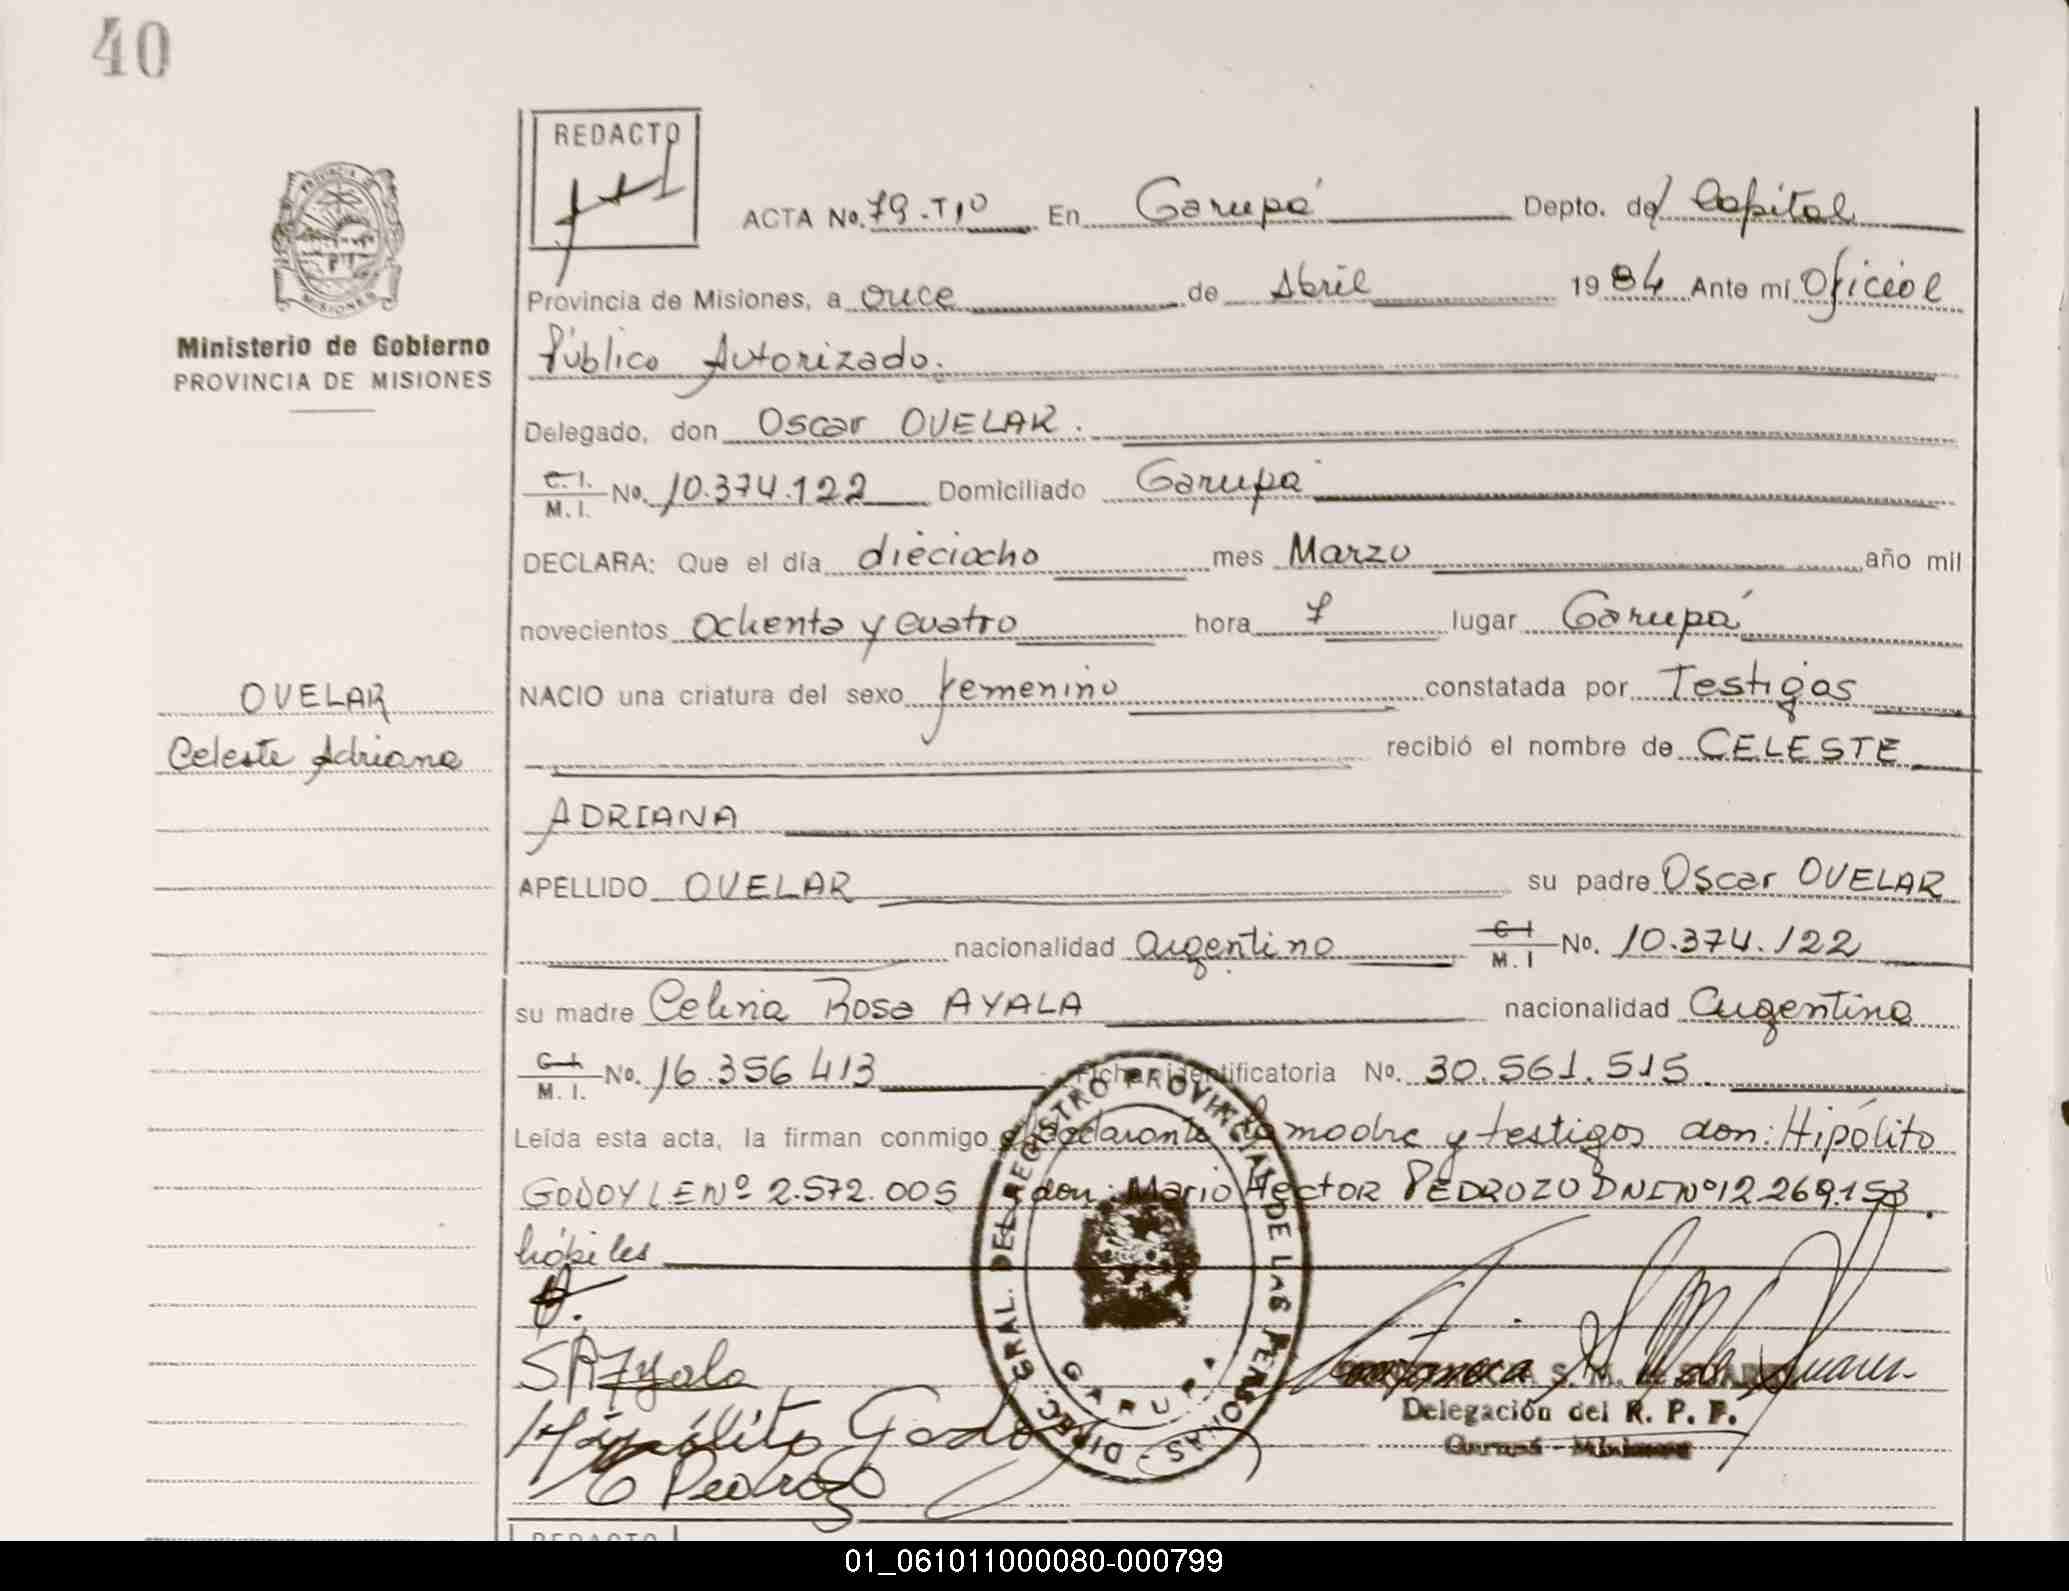 40
REDACTO
ACTA No. 79.T1º En Garupá Depto. de Capital
Provincia de Misiones, a once de Abril 1984 Ante mi Oficial
Público Autorizado.
Ministerio de Gobierno
PROVINCIA DE MISIONES
Delegado, don Oscar OVELAR.
C.I. M.I. No. 10.374.122 Domiciliado Garupá
DECLARA: Que el día dieciocho mes Marzo año mil
novecientos ochenta y cuatro hora 7 lugar Garupá
OVELAR
NACIO una criatura del sexo femenino constatada por Testigos
Celeste Adriana
recibió el nombre de CELESTE
ADRIANA
APELLIDO OVELAR su padre Oscar OVELAR
nacionalidad argentino C I M. I No. 10.374.122
su madre Celina Rosa AYALA nacionalidad Argentina
C I M. I. No. 16.356 413 Ficha identificatoria No. 30.561.515.
Leída esta acta, la firman conmigo el declarante la madre y testigos don: Hipólito
GODOY LE Nº 2.572.005 y don: Mario Hector PEDROZO DNI Nº 12.269.153
hábiles
DIREC. GRAL. DEL REGISTRO PROVINCIAL DE LAS PERSONAS - GARUPA
Ayala
Hipólito Godoy
Pedrozo
Delegación del R. P. P.
Garupá - Misiones
REDACTO
01_061011000080-000799